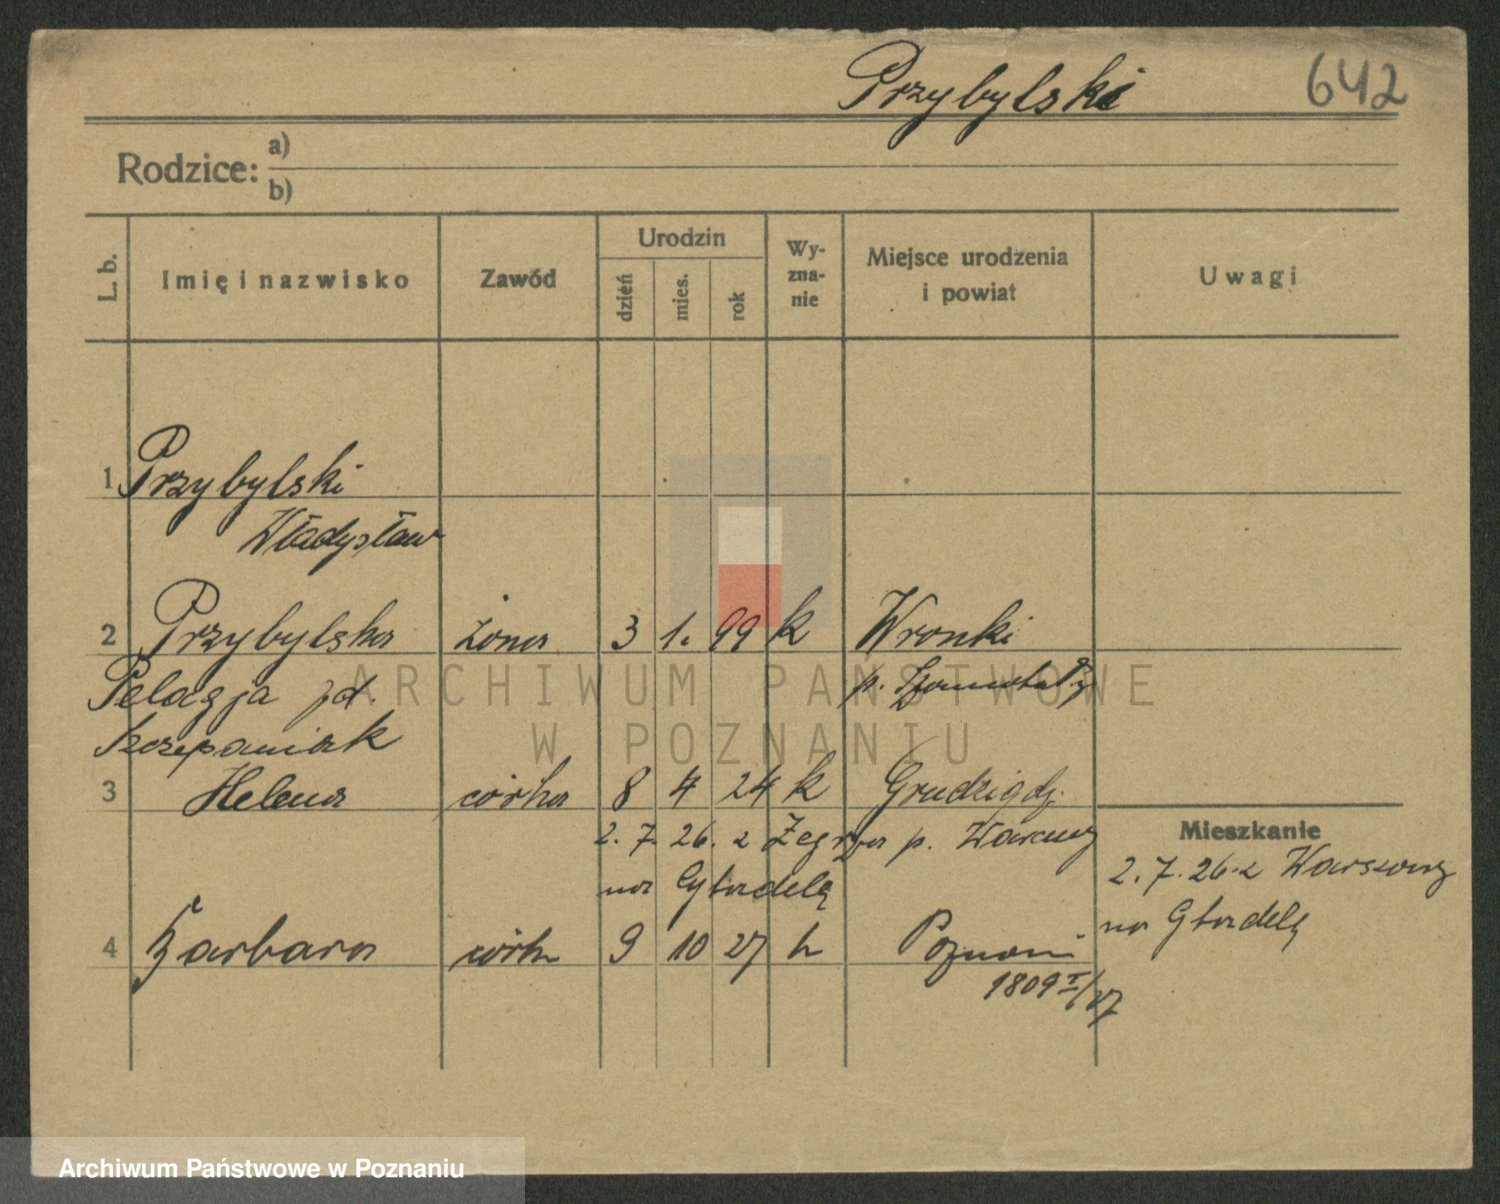 Przybylski 642
Rodzice: a)
b)
L. b. Imię i nazwisko Zawód Urodzin dzień mies. rok Wy-zna-nie Miejsce urodzenia i powiat Uwagi
1 Przybylski
Władysław
2 Przybylska żona 3 1. 99 k Wronki
Pelagja p. Szamotuły
Szczepaniak
3 Helena córka 8 4 24 k Grudziądz
Mieszkanie
2. 7. 26. z Zegrza p. Warszawy
na Cytadelę
2. 7. 26. z Warszawy
na Cytadelę
4 Barbara córka 9 10 27 k Poznań
1809 I/27
ARCHIWUM PAŃSTWOWE
W POZNANIU
Archiwum Państwowe w Poznaniu